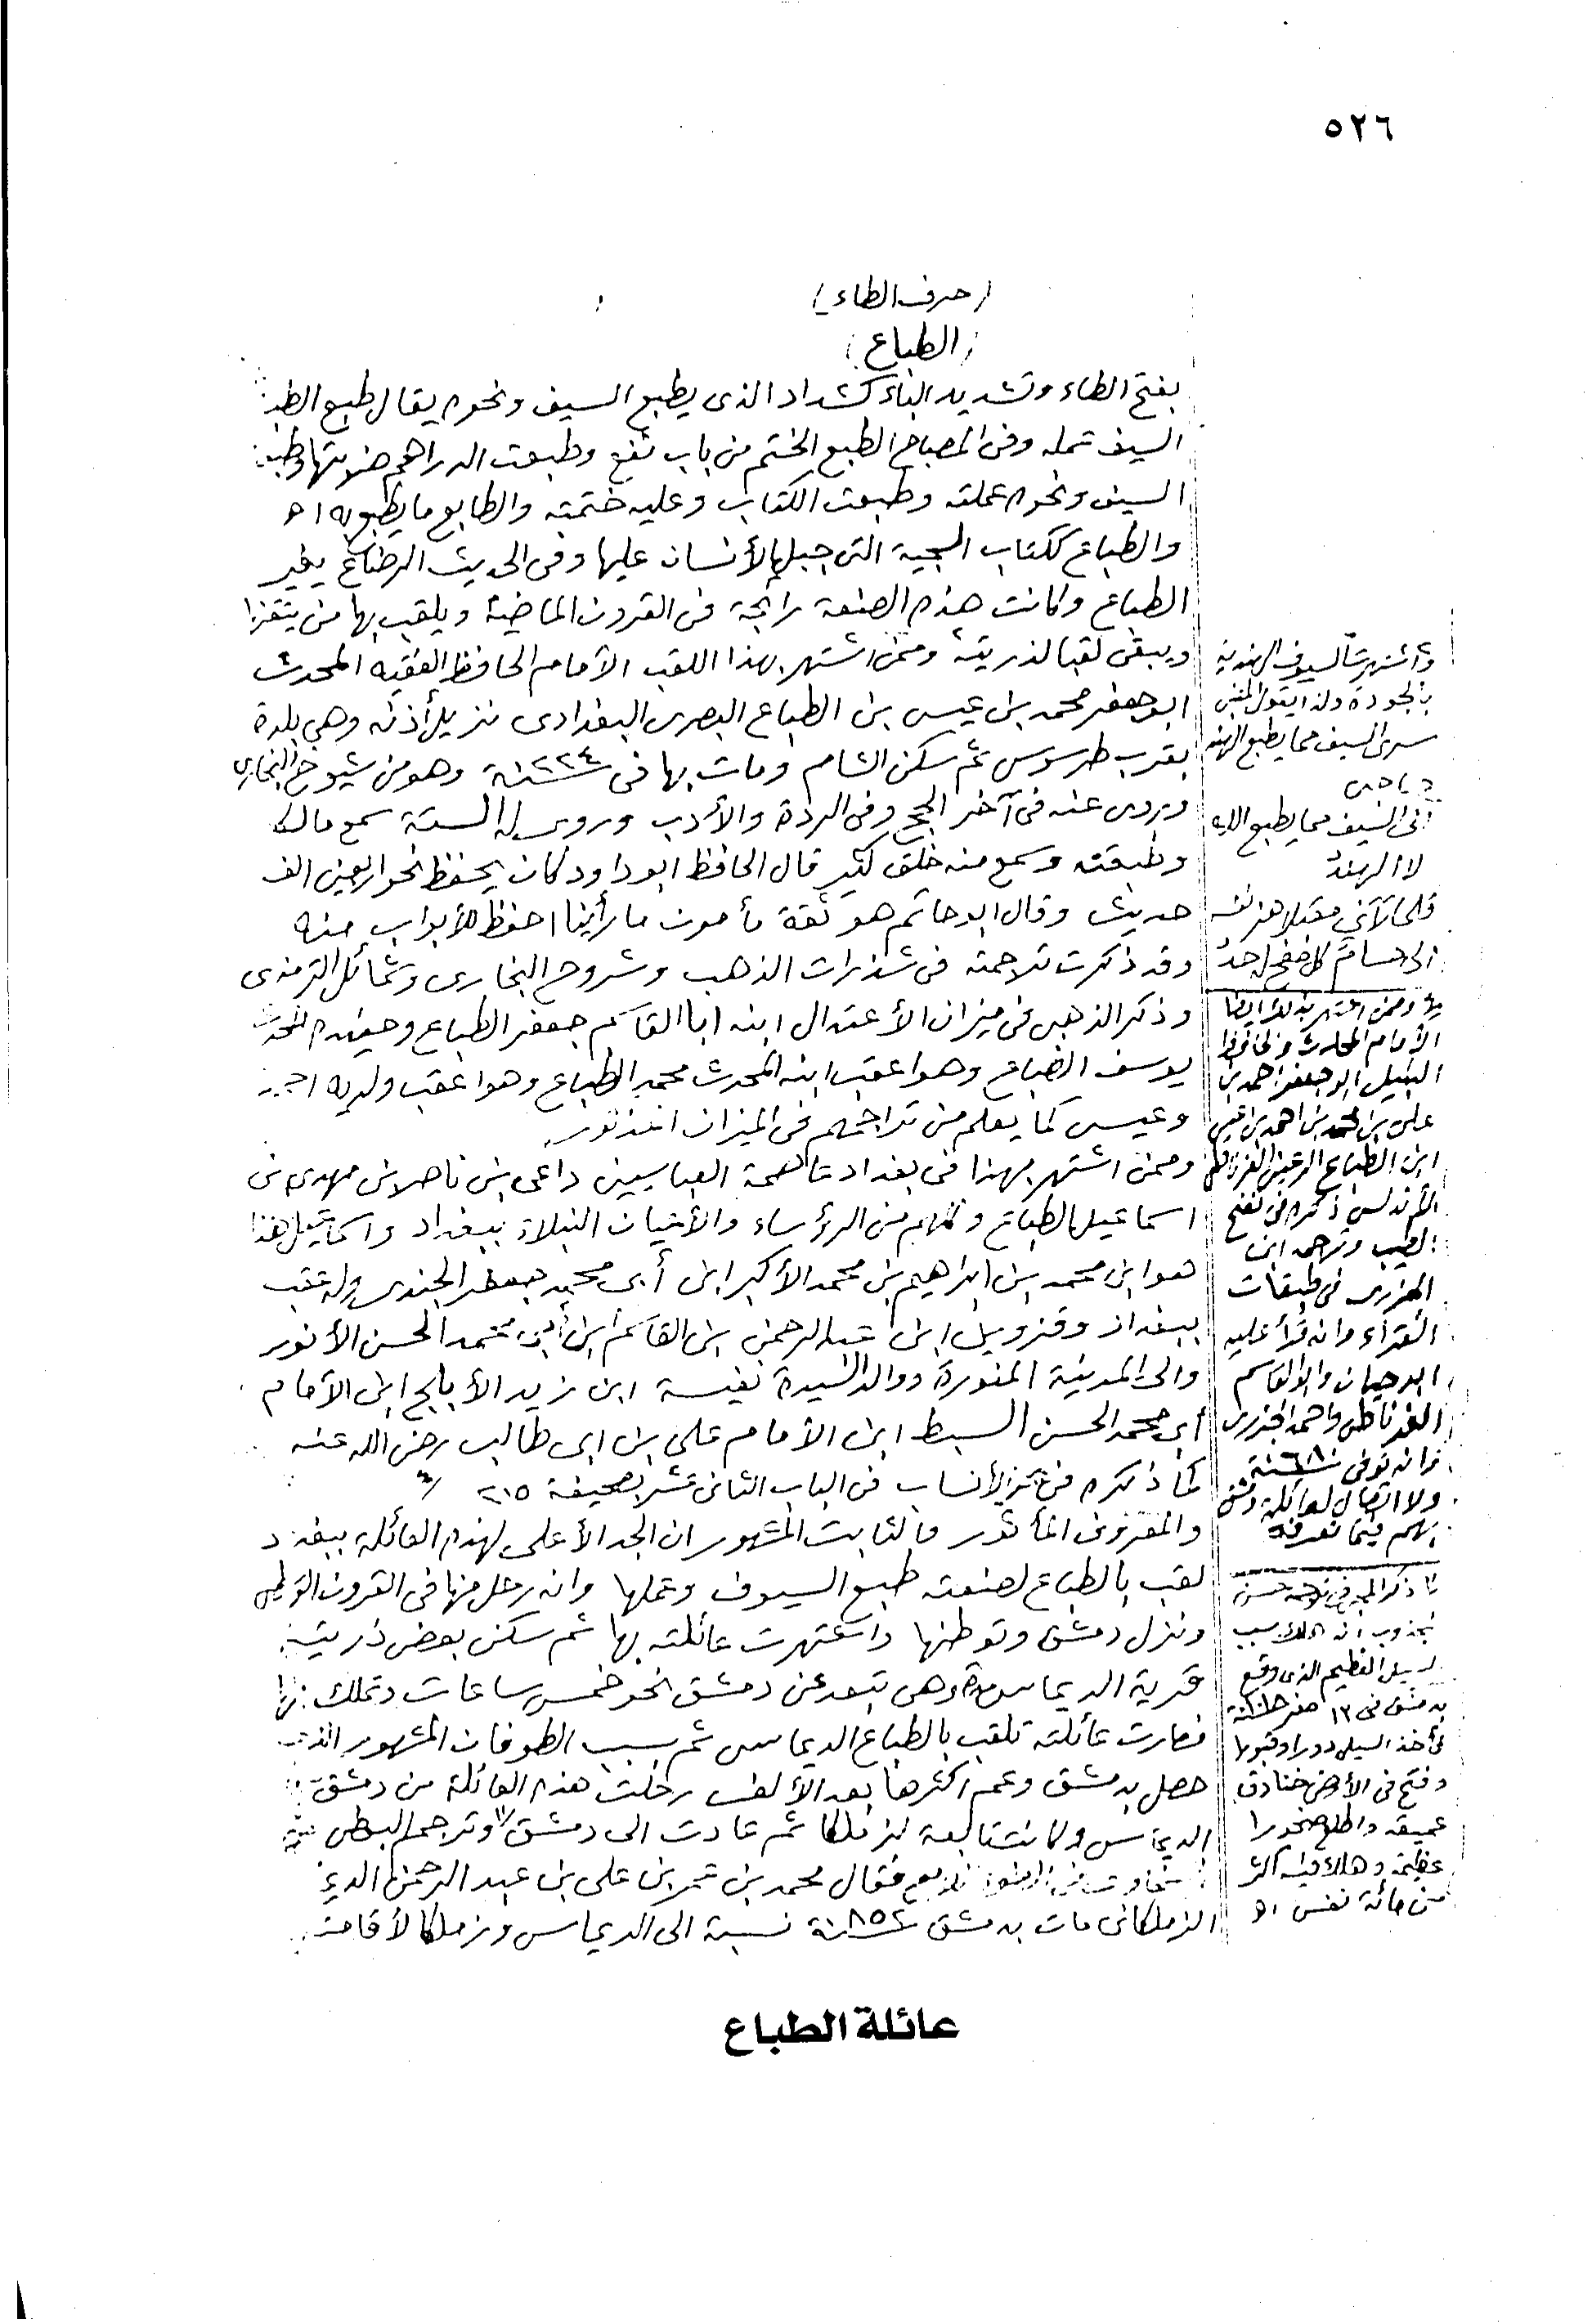 ٥٢٦
(حرف الطاء)
(الطباع)
بفتح الطاء وتشديد الباء كشداد الذى يطبع السيف ونحوه يقال طبع
السيف عمله وفى المصباح الطبع الختم من باب نفع وطبعت الدراهم ضربتها
السيف ونحوه عملته وطبعت الكتاب وعليه ختمته والطابع ما يطبع به اه
والطباع ككتاب السجية التى جبل الأنسان عليها وفى الحديث الرضاع يغير
الطباع وكانت هذه الصنعة رائجة فى القرون الماضية ويلقب بها من
ويبقى لقبا لذريته وممن اشتهر بهذا اللقب الأمام الحافظ الفقيه المحدث
ابو جعفر محمد بن عيسى بن الطباع البصرى البغدادى نزيل أذنه وهي بلدة
بقرب طرسوس ثم سكن الشام ومات بها فى سنة ٢٢٤ وهو من شيوخ البخارى
ويروى عنه فى آخر الحج وفى الردة والأدب وروى له الستة سمع مالكا
وطبقته وسمع منه خلق كثير قال الحافظ ابو داود كان يحفظ نحو اربعين الف
حديث وقال ابو حاتم هو ثقة مأمون ما رأينا احفظ للأبواب منه
وقد ذكرت ترجمته فى شذرات الذهب وشروح البخارى وشمائل الترمذى
وذكر الذهبى فى ميزان الأعتدال ابنه ابا القاسم جعفر الطباع وحفيده المحدث
يوسف الطباع وهو اعقب ابنه المحدث محمد الطباع وهو اعقب ولديه
وعيسى كما يعلم من تراجمهم فى الميزان
وممن اشتهر بهذا فى بغداد عاصمة العباسيين داعى بن ناصر بن مهدى بن
اسماعيل الطباع وكلهم من الرؤساء والأعيان النبلاء ببغداد واسماعيل هذا
هو ابن محمد بن ابراهيم بن محمد الأكبر ابن أبى محمد جعفر الجندى وله عقب
ببغداد وقزوين ابن عبد الرحمن بن القاسم ابن أبى محمد الحسن الأنور
والى المدينة المنورة ووالد السيدة نفيسة ابن زيد الأبلج ابن الأمام
أبى محمد الحسن السبط ابن الأمام على بن ابى طالب رضى الله عنه
كما ذكره فى بحر الأنساب فى الباب الثانى عشر بصحيفة ٢١٥
والمعروف المأثور والثابت المشهور ان الجد الأعلى لهذه العائلة ببغداد
لقب بالطباع لصنعته طبع السيوف وعملها وانه رحل منها فى القرون الوسطى
ونزل دمشق وتوطنها واشتهرت عائلته بها ثم سكن بعض ذريته
قرية الديماس وهى تبعد عن دمشق نحو خمس ساعات وتملك بها
فصارت عائلته تلقب بالطباع الديماسى ثم بسبب الطوفان المشهور الذى
حصل بدمشق وعم اكثرها بعد الألف رحلت هذه العائلة من دمشق
الديماس وكانت تابعة لزملكا ثم عادت الى دمشق وترجم
السخاوى فى الضوء اللامع فقال محمد بن عمر بن على بن عبد الرحمن
الزملكانى مات بدمشق سنة ٨٥٢ نسبة الى الديماس وزملكا لأقامته
واشتهرت السيوف الهندية
بالجودة ولذا يقول المتنبى
سرى السيف مما يطبع الهند
صاحبى
الى السيف مما يطبع الله
لا الهند
فلما رآنى مقبلا هز نفسه
الى حسام كل صفح له حد
وممن اشتهر بذلك ايضا
الأمام المحدث والحافظ
النبيل ابو جعفر احمد بن
على بن محمد بن احمد بن عيسى
ابن الطباع الرعينى الغرناطى
الأندلسى ذكره فى نفح
الطيب وترجمه ابن
الجزرى فى طبقات
القراء وانه قرأ عليه
ابو حيان وابو القاسم
الغرناطى واحمد الجزرى
وانه توفى سنة ٦٨٠
ولا اتصال لعائلة دمشق
بهم فيما نعرفه
ذكر المحبى فى ترجمة حسن
مجذوب انه هلك بسبب
السيل العظيم الذى وقع
بدمشق فى ١٢ صفر
فأخذ السيل دورا وقبورا
وفتح فى الأرض خنادق
عميقة واطلع صخورا
عظيمة وهلك فيه اكثر
من مائة نفس اه
عائلة الطباع